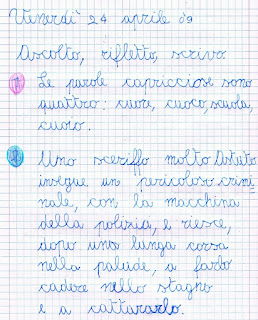 Venerdì 24 aprile 09
Ascolto, rifletto, scrivo
1 Le parole capricciose sono
quattro: cuore, cuoco, scuola,
cuoio.
2 Uno sceriffo molto astuto
insegue un pericoloso crimi
nale, con la macchina
della polizia, e riesce,
dopo una lunga corsa
nella palude, a farlo
cadere nello stagno
e a cattararlo.